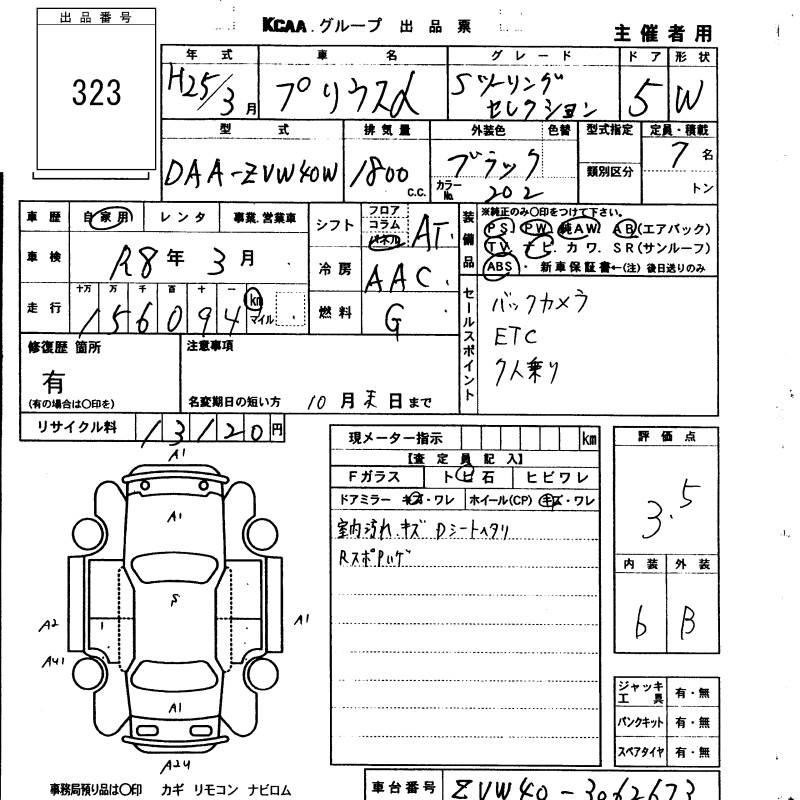 出品番号
323
KCAA.グループ 出品票
主催者用
年式 車名 グレード ドア 形状
H25/3月 プリウスα Sツーリング セレクション 5 W
型式 排気量 外装色 色替 型式指定 定員・積載
DAA-ZVW40W 1800 c.c. ブラック カラーNo. 202 類別区分 7名 トン
車歴 自家用 レンタ 事業.営業車
車検 R8年 3月
走行 十万 万 千 百 十 一
156094 km マイル
シフト フロア コラム パネル AT
冷房 AAC
燃料 G
装備品 ※純正のみ○印をつけて下さい。
PS PW 純AW AB(エアバッグ)
TV ナビ.カワ.SR(サンルーフ)
ABS ・新車保証書←(注)後日送りのみ
セールスポイント
バックカメラ
ETC
7人乗り
修復歴 箇所
有
(有の場合は○印を)
注意事項
名変期日の短い方 10月末日まで
リサイクル料 13120円
現メーター指示 km
【査定員記入】
Fガラス トビ石 ヒビワレ
ドアミラー キズ・ワレ ホイール(CP) キズ・ワレ
室内汚れ.キズ Dシートヘタリ
評価点
3.5
内装 外装
6 B
A1
A1
S
A2 A1
A1
A24
ジャッキ工具 有・無
パンクキット 有・無
スペアタイヤ 有・無
事務局預り品は○印 カギ リモコン ナビロム
車台番号 ZVW40-3062673